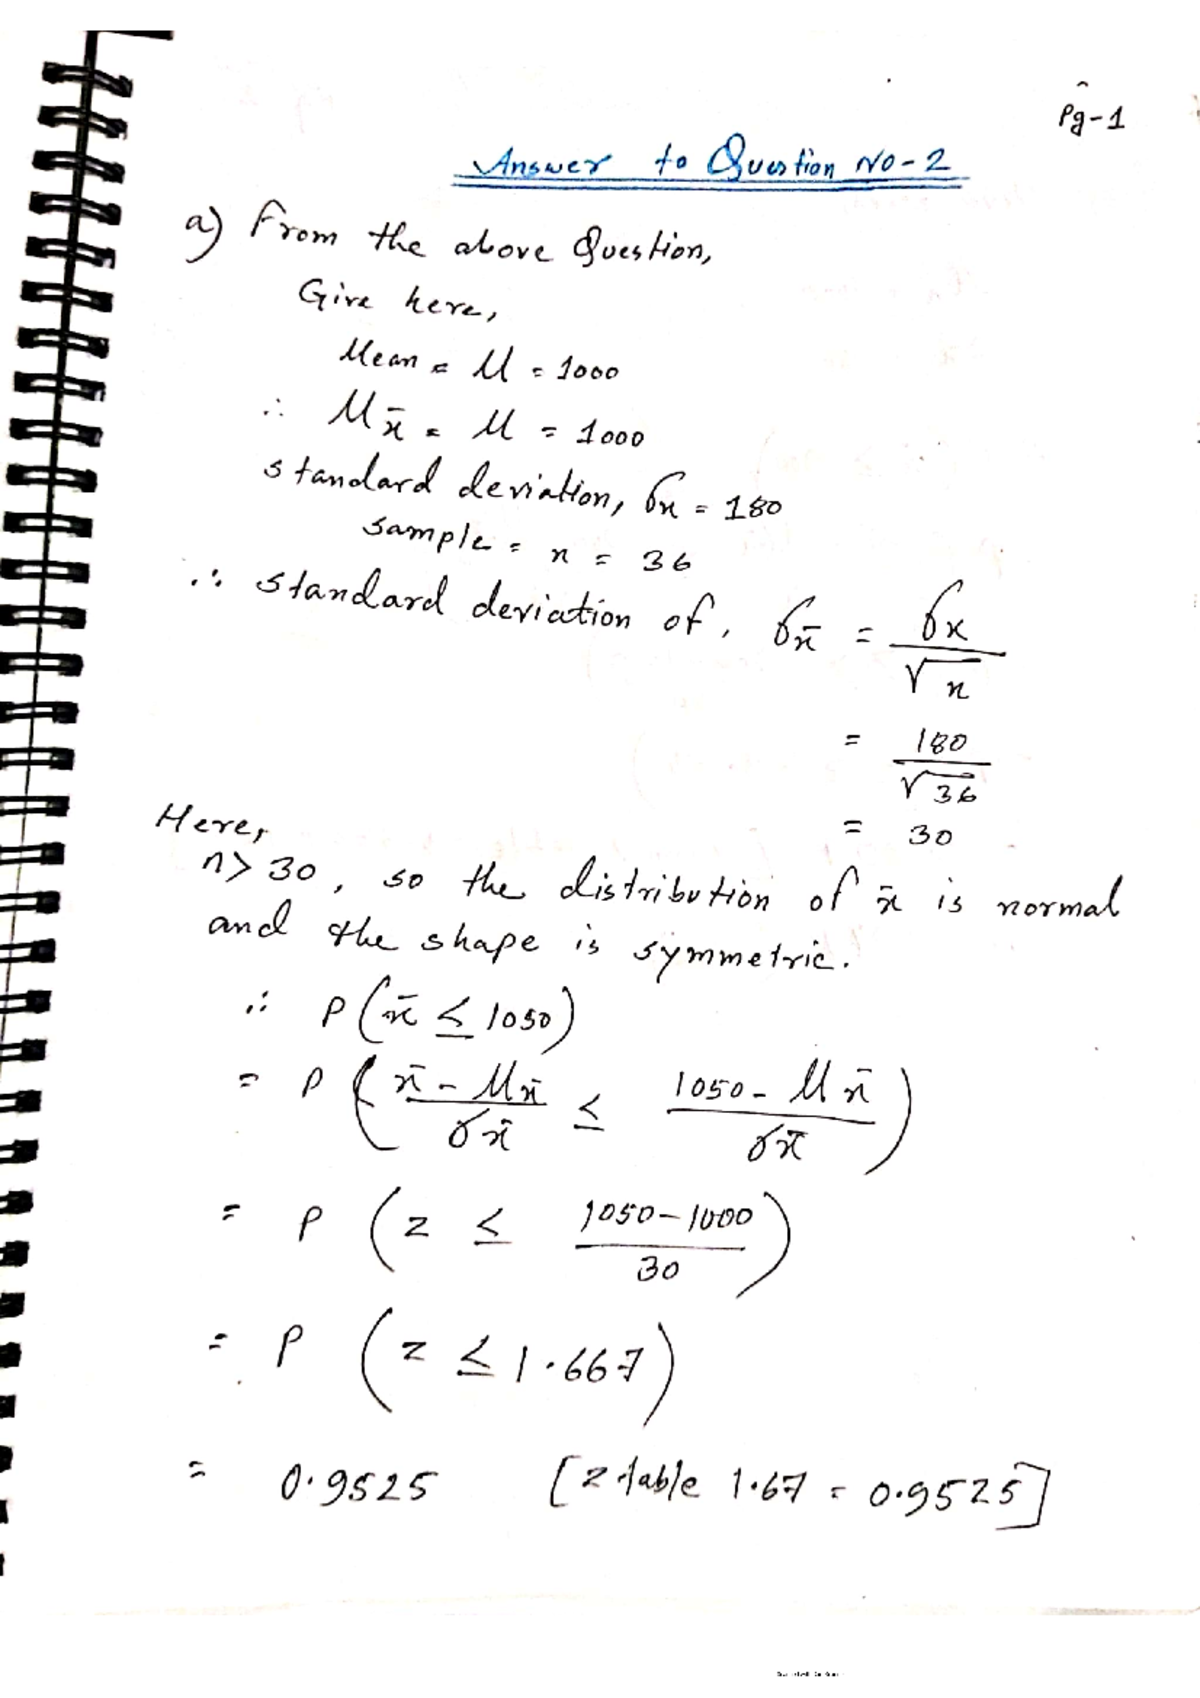 Pg-1
Answer to Question No-2
a) From the above Question,
Give here,
Mean = M = 1000
∴ Mx̄ = M = 1000
standard deviation, σx = 180
sample = n = 36
∴ standard deviation of, σx̄ = σx / √n
= 180 / √36
= 30
Here,
n > 30, so the distribution of x̄ is normal
and the shape is symmetric.
∴ P(x̄ ≤ 1050)
= P( (x̄ - Mx̄) / σx̄ ≤ (1050 - Mx̄) / σx̄ )
= P ( z ≤ (1050-1000) / 30 )
= P ( z ≤ 1.667)
= 0.9525 [z table 1.67 = 0.9525]